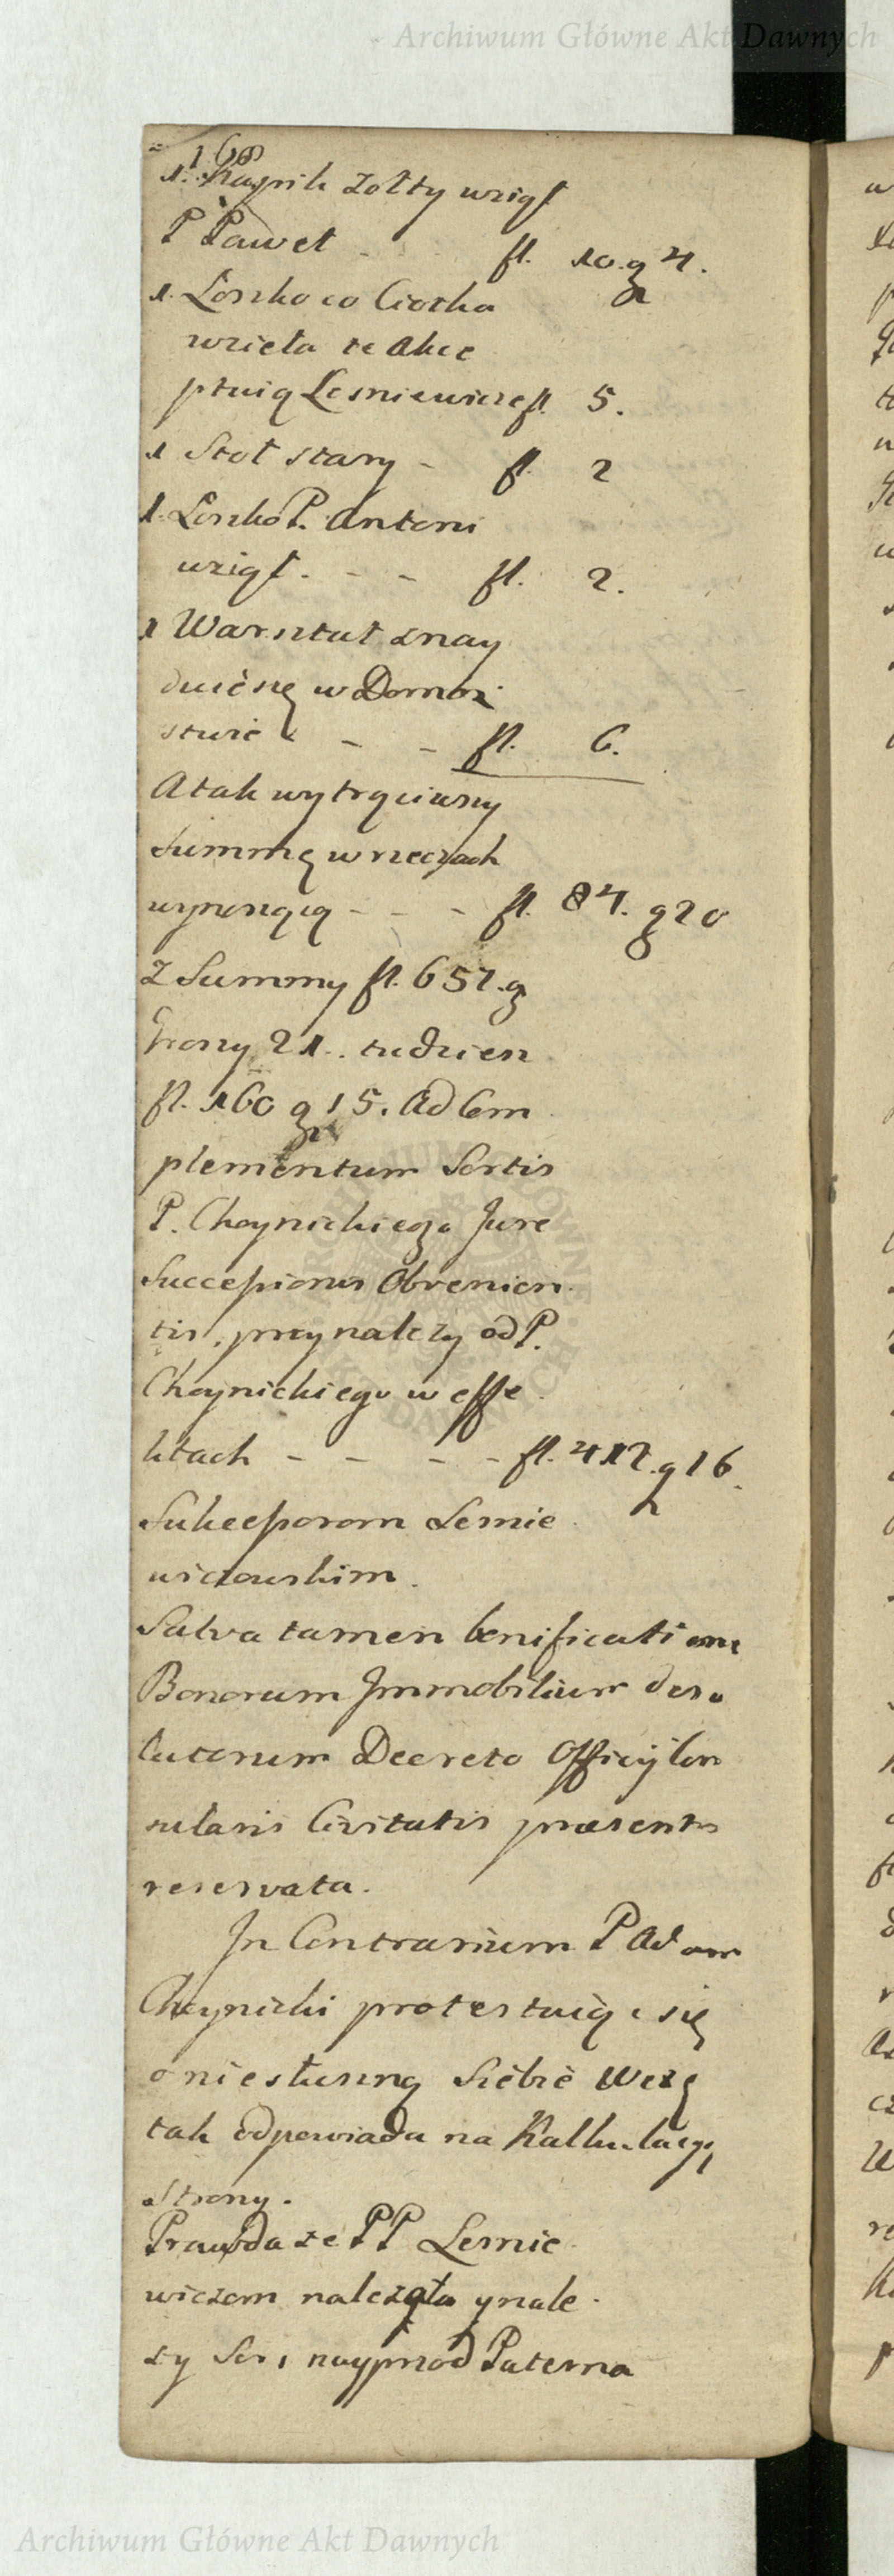 Archiwum Główne Akt Dawnych
168
1. Kaynik zołty wziął
P Paweł fl. 10. g 4.
1. Łoszko co Ciotka
wzieła te Akce
ptuią Lesniewicze fl. 5.
1 Stoł stary - fl. 2
1. Łoszko P. Antoni
wziął. - - fl. 2.
1 Warsztat znay
duie się w Domow
stwie - - fl. 6.
A tak wytrąciwszy
Summę w rzeczach
wynosącą - - - fl. 84. g 20
z Summy fl. 657. g
Srony 21. tudzien
fl. 160 g 15. Ad Com
plementum Sortis
P. Choynickiego Jure
Successionis Obvenien
tis, przynależy od P.
Choynickiego w effe
ktach - - - - fl. 412. g 16.
Sukcessorom Lesnie
wiczowskim.
Salva tamen bonificatione
Bonorum Immobilium deso
latorum Decreto Officij Con
sularis Civitatis præsentis
reservata.
In Contrarium P Adam
Choynicki protestuiąc się
o niesłuszną Siebie Wexę
tak odpowiada na Kalkulacyą
Strony.
Prawda ze PP Lesnie
wiczom należała y nale
zy Sors nayprzod Paterna
Archiwum Główne Akt Dawnych